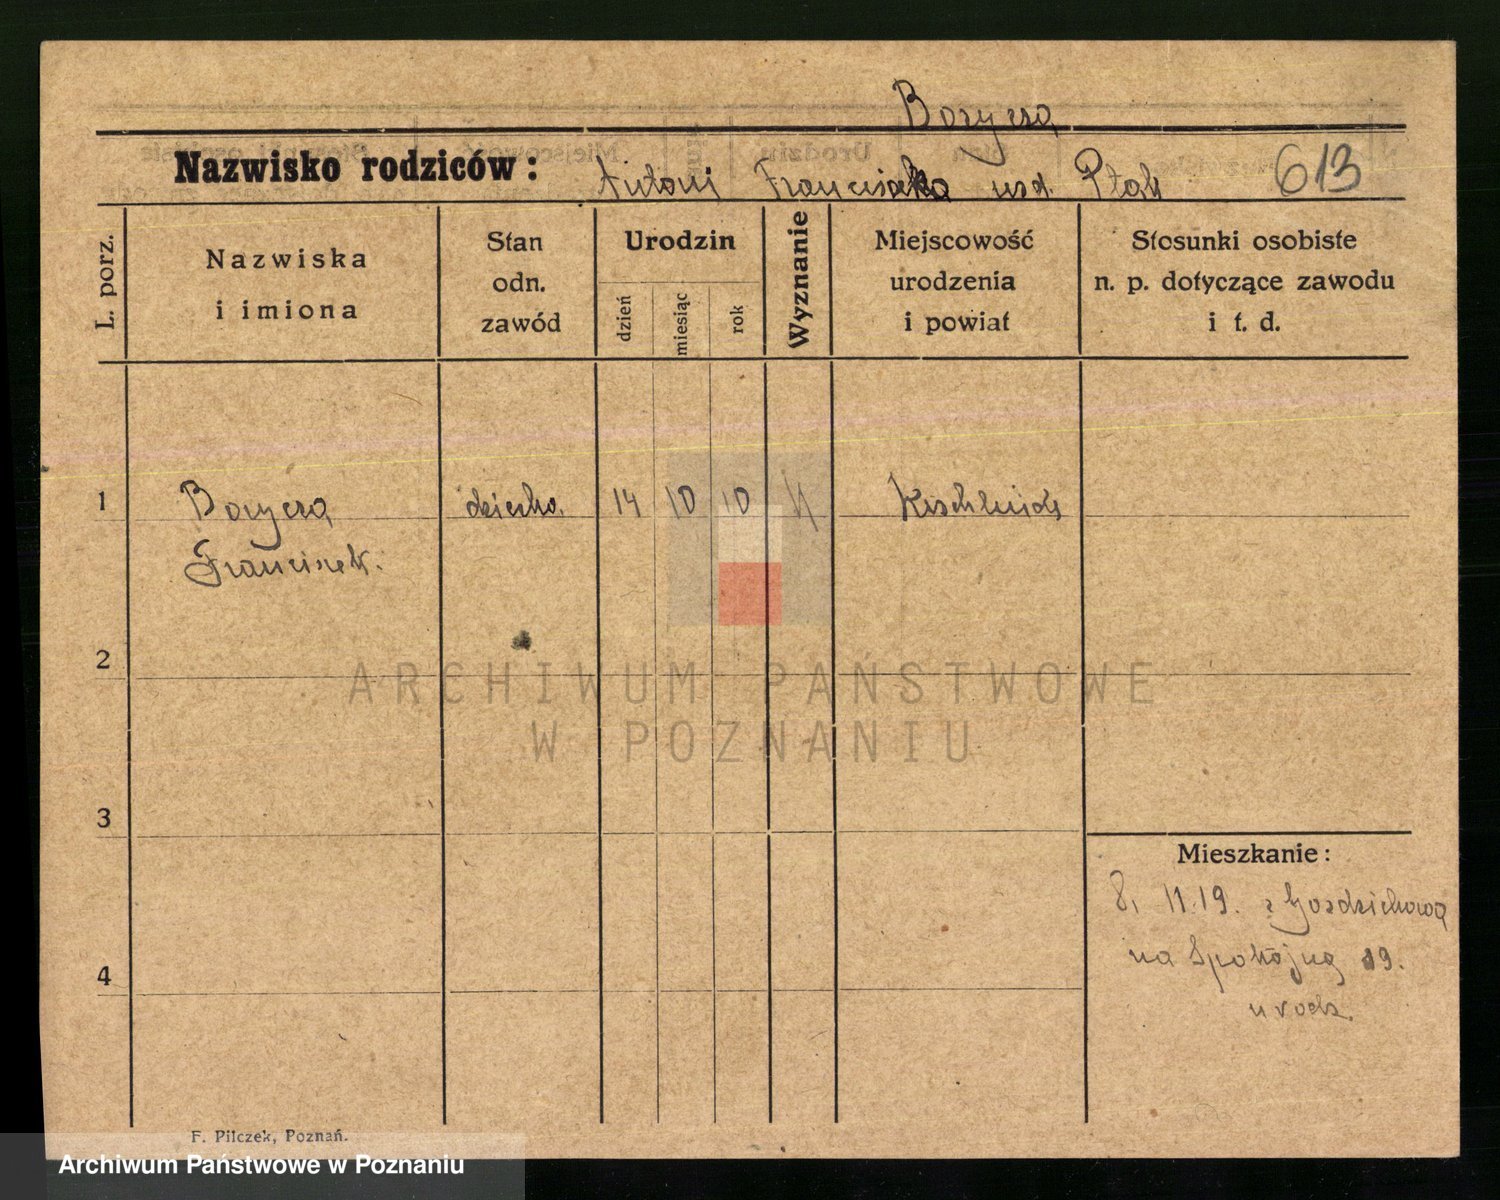 Boryczą
Nazwisko rodziców: Antoni Franciszka urd. Ptak 613
L. porz.
Nazwiska
i imiona
Stan
odn.
zawód
Urodzin
dzień
miesiąc
rok
Wyznanie
Miejscowość
urodzenia
i powiat
Stosunki osobiste
n. p. dotyczące zawodu
i t. d.
1 dziecko. 14 10 10
Franciszek.
2
3
4
Mieszkanie:
8. 11.19. z
na Spokojną 19.
u rodz.
F. Pilczek, Poznań.
ARCHIWUM PAŃSTWOWE
W POZNANIU
Archiwum Państwowe w Poznaniu